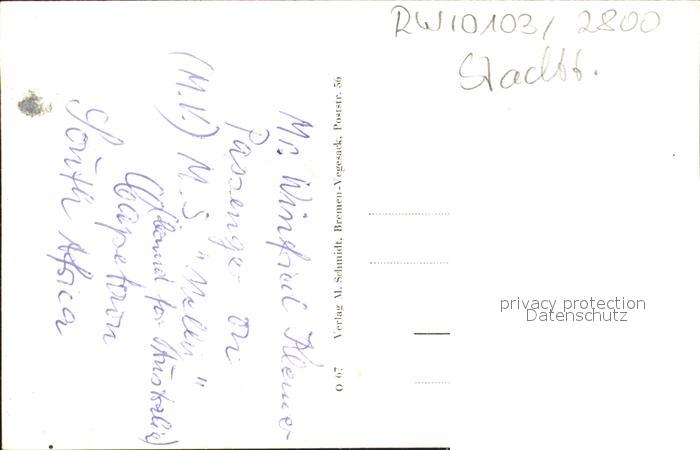 RW10103/ 2800
Stadtb.
Mr. Winfried Klemer
Passenger on
(M.V.) M.S
(bound for Australia)
Capetown
South Africa
Verlag M. Schmidt, Bremen-Vegesack, Poststr. 56
O 67
privacy protection
Datenschutz